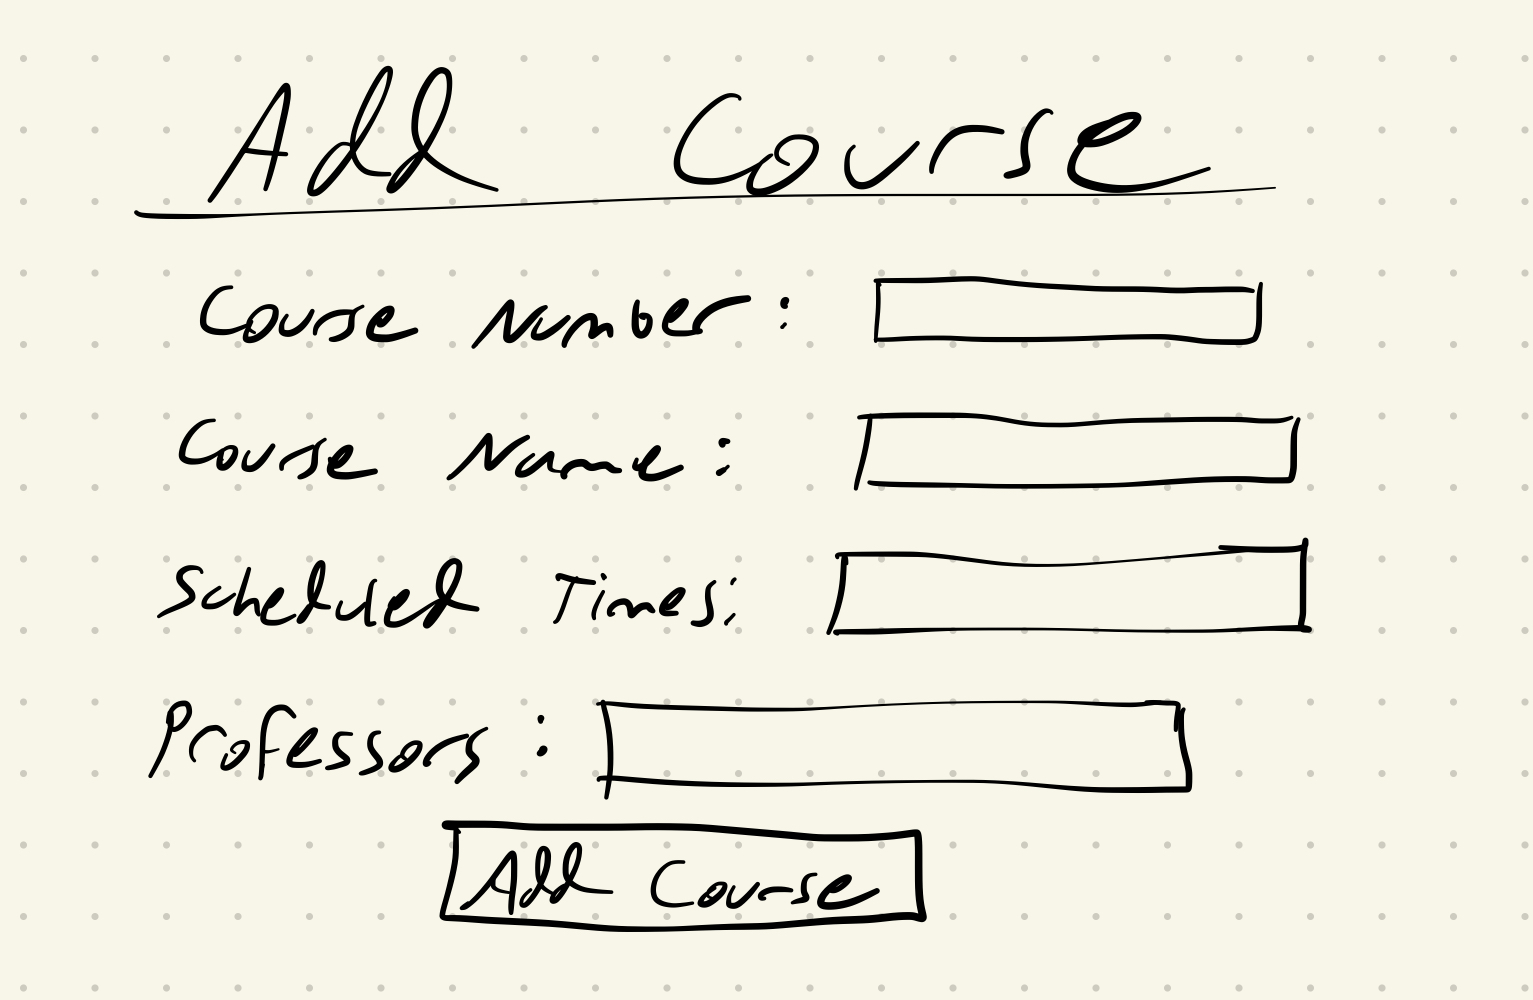 Add Course
Course Number:
Course Name:
Scheduled Times:
Professors:
Add Course